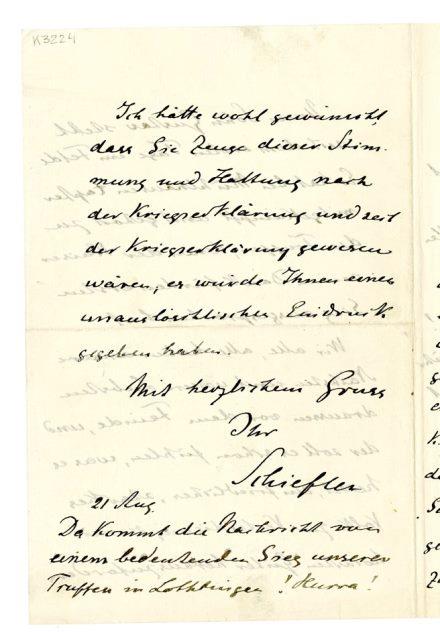 K3224
Ich hätte wohl gewünscht,
dass Sie Zeuge dieser Stim-
mung und Haltung nach
der Kriegserklärung und seit
der Kriegserklärung gewesen
wären, es würde Ihnen einen
unauslöschlichen Eindruck
gegeben haben.
Mit herzlichem Gruss
Ihr
Schiefler
21 Aug.
Da kommt die Nachricht von
einem bedeutenden Sieg unserer
Truppen in Lothringen! Hurra!